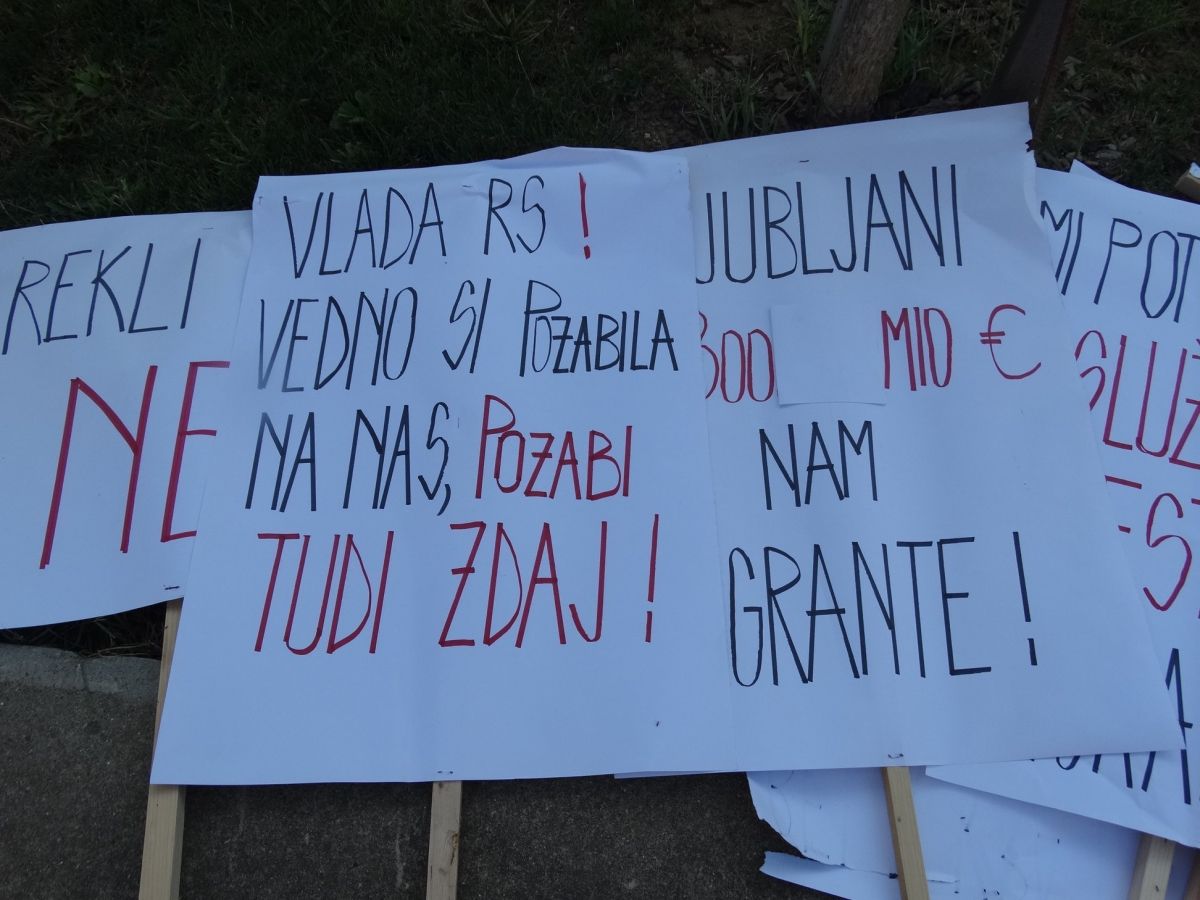 REKLI
NE
VLADA RS !
VEDNO SI POZABILA
NA NAS, POZABI
TUDI ZDAJ !
JUBLJANI
300 MIO €
NAM
GRANTE !
MI POT
SLUŽ